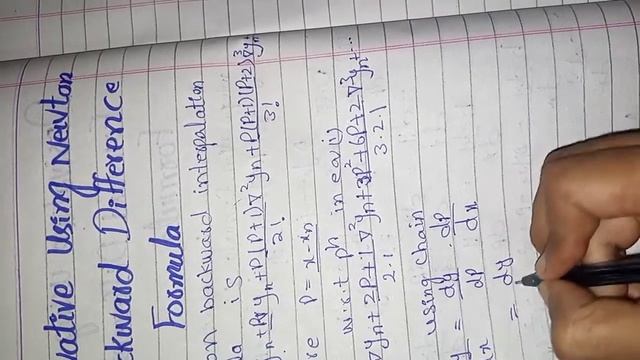 vative Using Newton
ckward Difference
Formula
on backward interpalation
la is
yn+P∇yn+P(P+1)∇²yn+P(P+1)(P+2)∇³yn
2! 3!
re P = x-xn
w.r.t pn in eaij
∇yn+2P+1 ∇²yn+3P²+6P+2 ∇³yn+...
2.1 3.2.1
using chain
y = dy . dP
dP dx
= dy